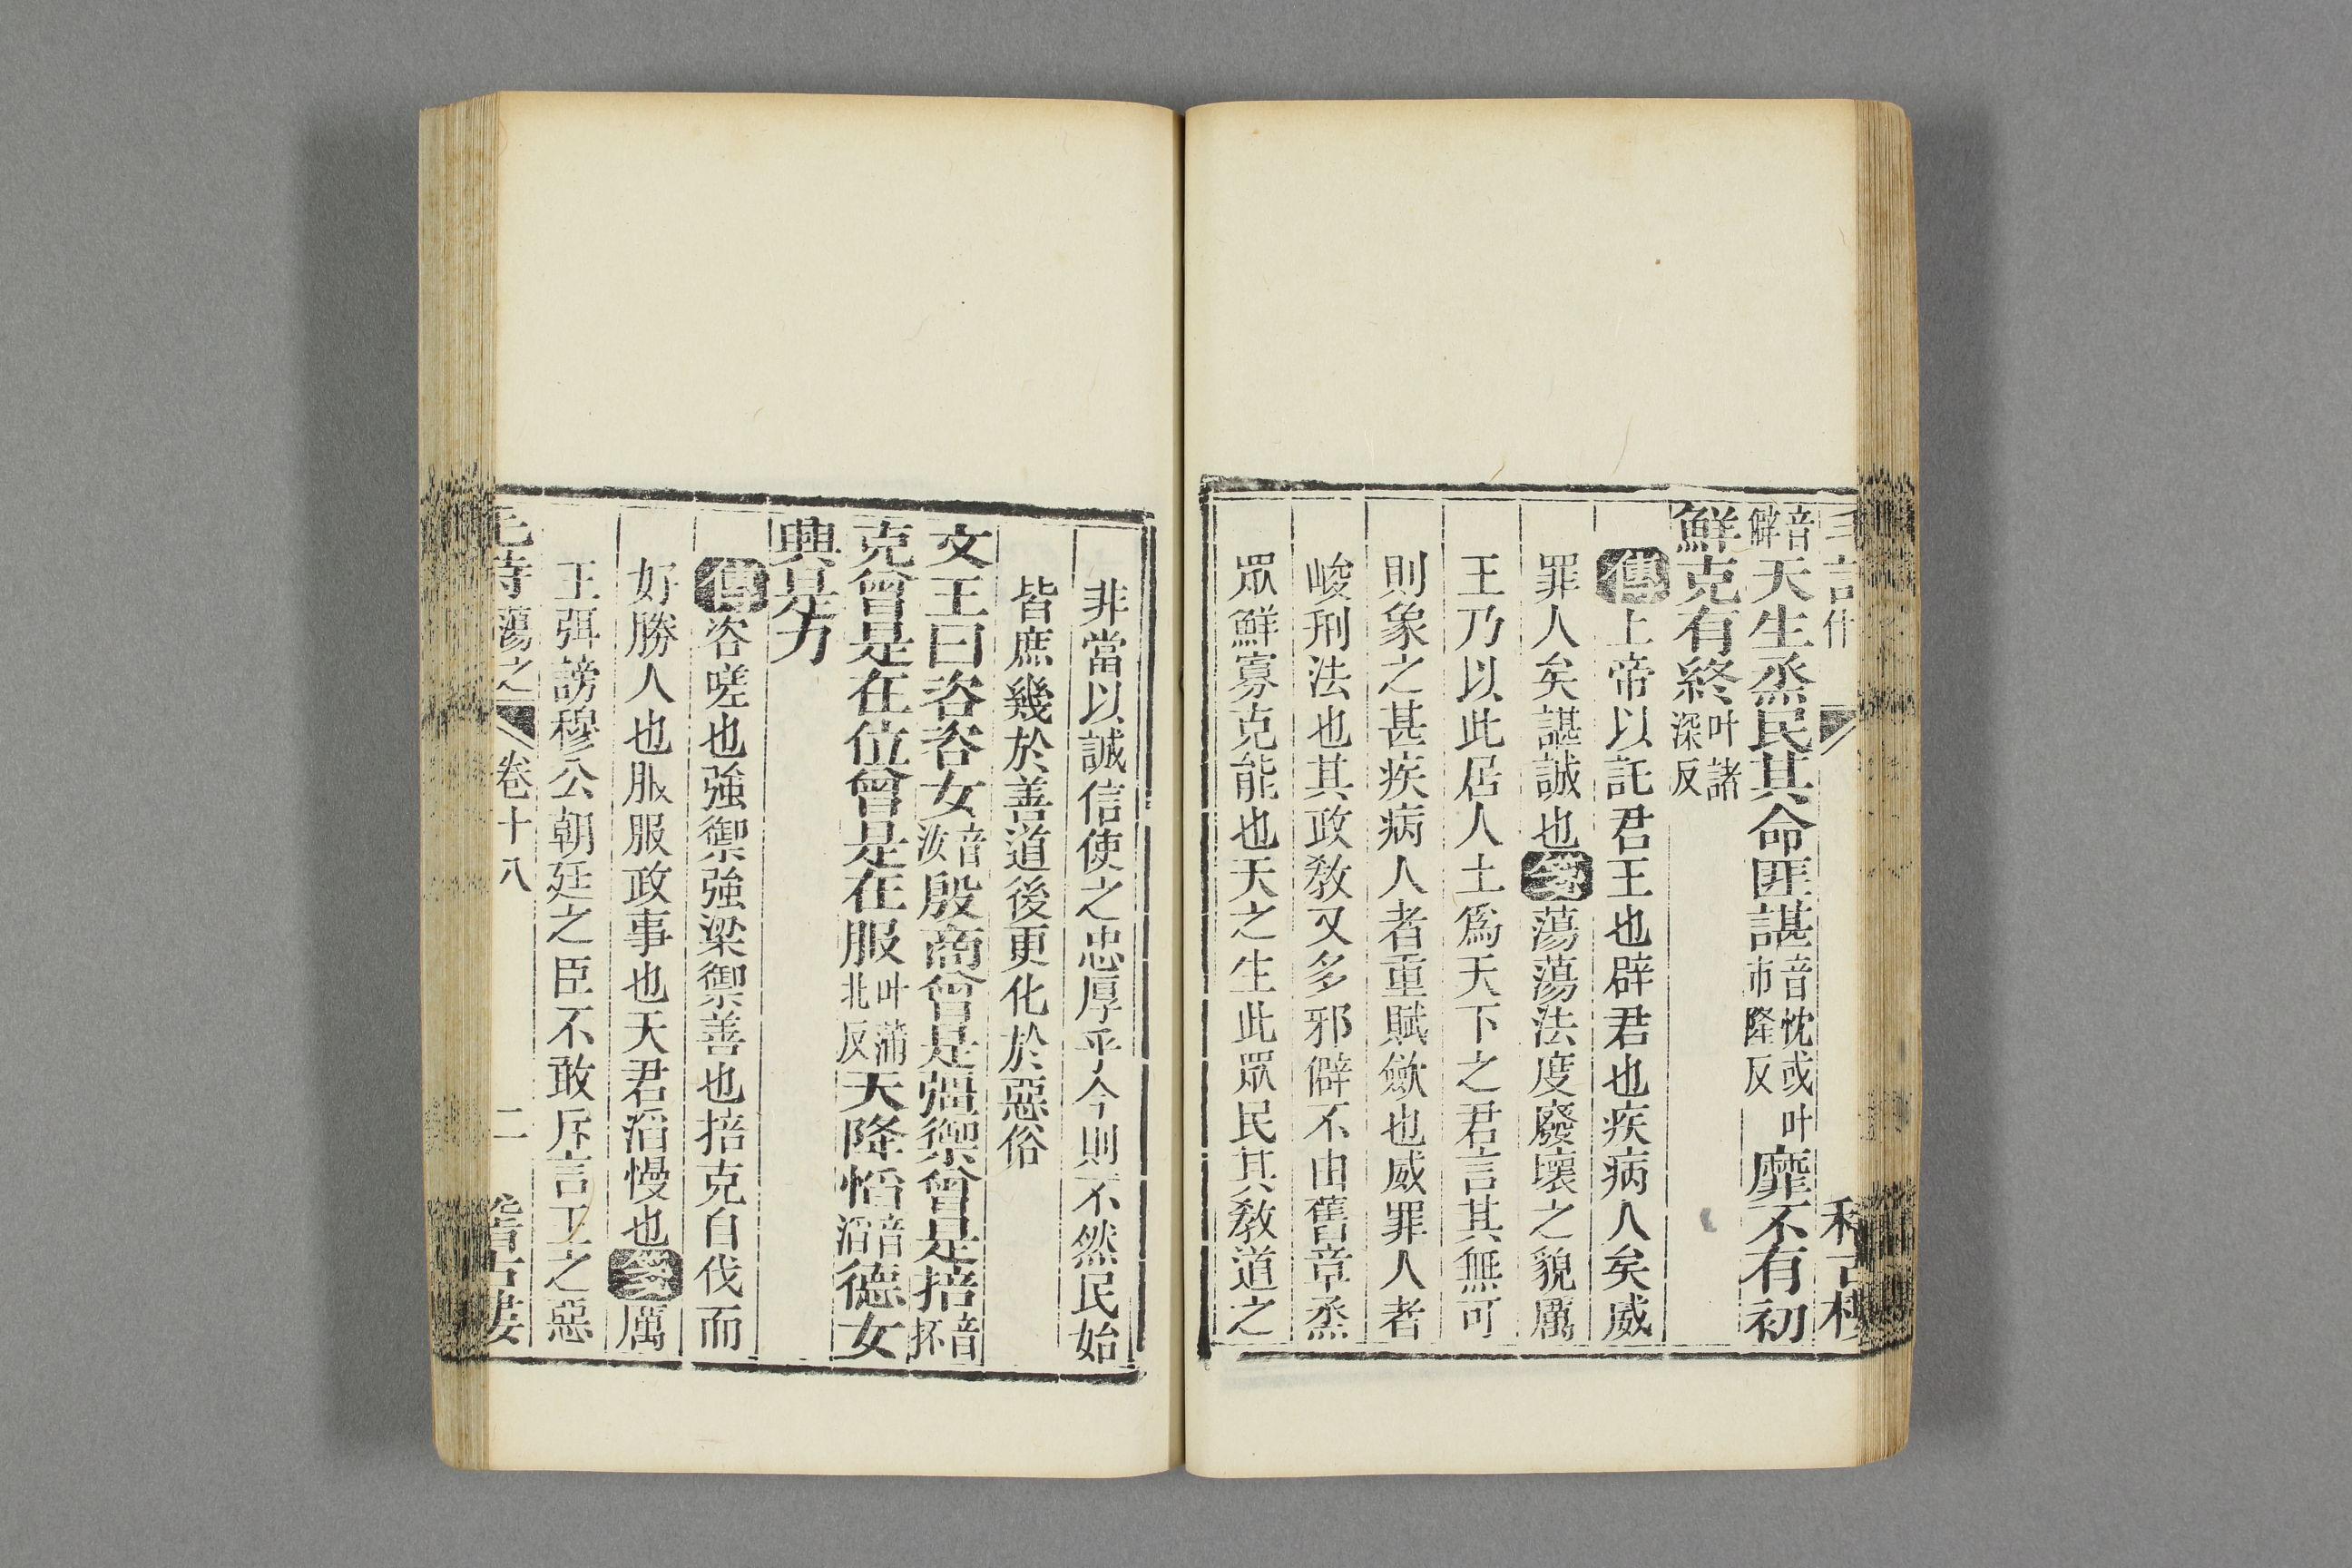 音僻天生烝民其命匪諶音忱或叶市隆反靡不有初
鮮克有終叶諸深反
傳上帝以託君王也辟君也疾病人矣威
罪人矣諶誠也箋蕩蕩法度廢壞之貌厲
王乃以此居人上爲天下之君言其無可
則象之甚疾病人者重賦斂也威罪人者
峻刑法也其政敎又多邪僻不由舊章烝
眾鮮寡克能也天之生此眾民其敎道之
非當以誠信使之忠厚乎今則不然民始
皆庶幾於善道後更化於惡俗
文王曰咨咨女音汝殷商曾是彊禦曾是掊音抔
克曾是在位曾是在服叶蒲北反天降慆音滔德女
興是力
傳咨嗟也強禦強梁禦善也掊克自伐而
好勝人也服服政事也天君滔慢也箋厲
王弭謗穆公朝廷之臣不敢斥言王之惡
毛詩 蕩之 卷十八 二